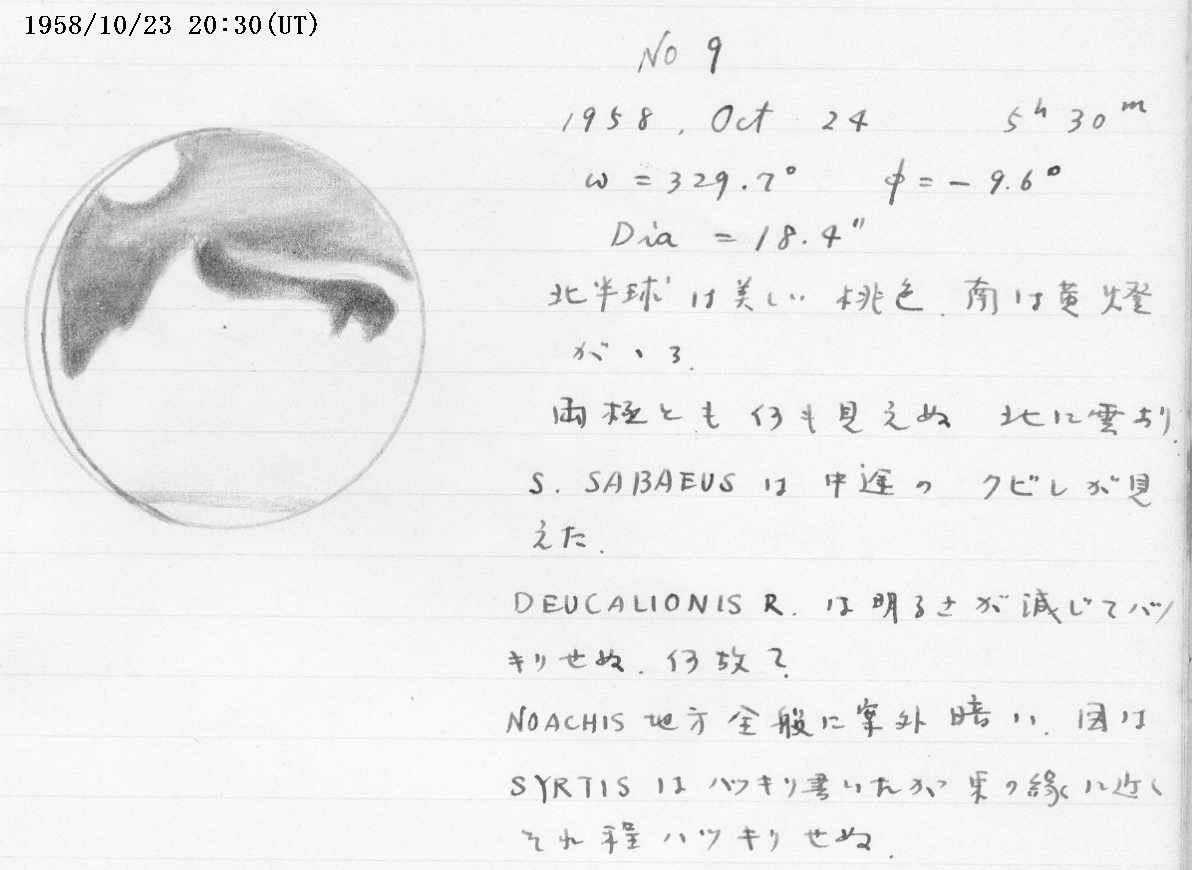 1958/10/23 20:30(UT)
No 9
1958, Oct 24 5h 30m
ω = 329.7° φ = - 9.6°
Dia = 18.4"
北半球は美しい桃色. 南は黄燈
がゝる.
両極とも何も見えぬ 北に雲あり.
S. SABAEUS は中途のクビレが見
えた.
DEUCALIONIS R. は明るさが減じてハッ
キリせぬ. 何故?
NOACHIS 地方全般に案外暗い. 図は
SYRTIS はハッキリ書いたが の縁に近く
それ程ハッキリせぬ.